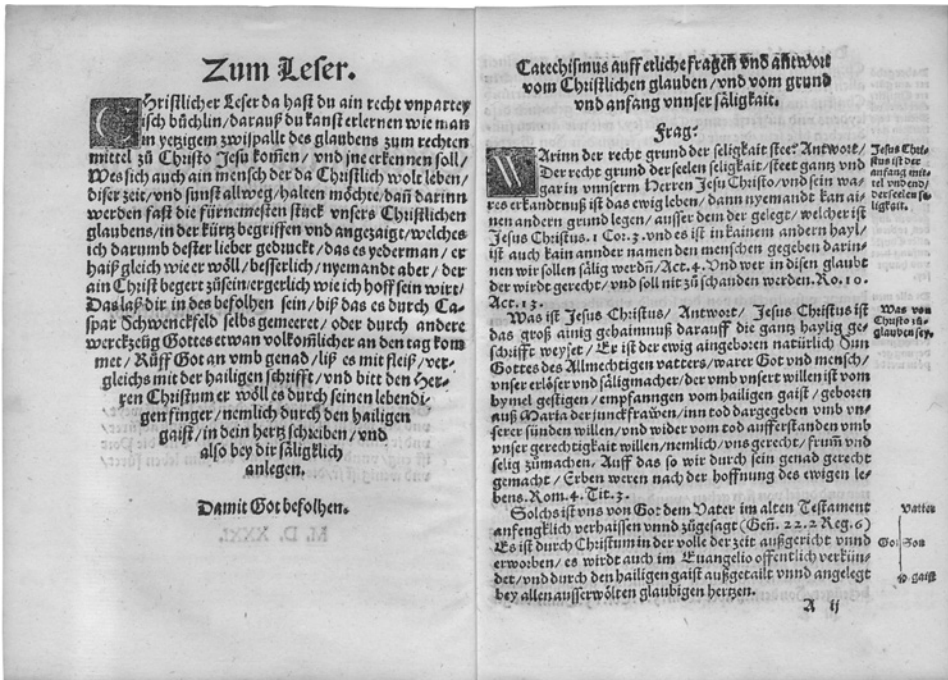 Zum Leser.
CHristlicher Leser da hast du ain recht vnpartey
isch büchlin/darauß du kanst erlernen wie man
in yetzigem zwispallt des glaubens zum rechten
mittel zů Christo Jesu kom̃en/vnd jne erkennen soll/
Wes sich auch ain mensch der da Christlich wolt leben/
diser zeit/vnd sunst allweg/halten möchte/dañ darinn
werden fast die fürnemesten stuck vnsers Christlichen
glaubens/in der kürtz begriffen vnd angezaigt/welches
ich darumb dester lieber gedruckt/das es yederman/er
haiß gleich wie er wöll/besserlich/nyemandt aber/der
ain Christ begert zůsein/ergerlich wie ich hoff sein wirt/
Das laß dir in des befolhen sein/biß das es durch Ca-
spar Schwenckfeld selbs gemeeret/oder durch andere
werckzeüg Gottes etwan volkom̃licher an den tag kom
met/Rüff Got an vmb genad/liß es mit fleiß/ver-
gleichs mit der hailigen schrifft/vnd bitt den Her-
ren Christum er wöll es durch seinen lebendi-
gen finger/nemlich durch den hailigen
gaist/in dein hertz schreiben/vnd
also bey dir säligklich
anlegen.
Damit Got befolhen.
Catechismus auff etliche fragen vnd antwort
vom Christlichen glauben/vnd vom grund
vnd anfang vnnser säligkait.
Frag:
WArinn der recht grund der seligkait steet? Antwort/
Der recht grund der seelen seligkait/steet gantz vnd
gar in vnnserm Herren Jesu Christo/vnd sein wa-
res erkandtnuß ist das ewig leben/dann nyemandt kan ai-
nen andern grund legen/ausser dem der gelegt/welcher ist
Jesus Christus. 1 Cor. 3. vnd es ist in kainem andern hayl/
ist auch kain annder namen den menschen gegeben darin-
nen wir sollen sälig werdñ/Act. 4. Vnd wer in disen glaubt
der wirdt gerecht/vnd soll nit zů schanden werden. Ro. 10.
Act. 13.
Jesus Chri-
stus ist der
anfang mit-
tel vnd end/
der seelen se-
ligkait.
Was ist Jesus Christus/ Antwort/ Jesus Christus ist
das groß ainig gehaimnuß darauff die gantz haylig ge-
schrifft weyset/ Er ist der ewig aingeboren natürlich Sun
Gottes des Allmechtigen vatters/warer Got vnd mensch/
vnser erlöser vnd säligmacher/der vmb vnsert willen ist vom
hymel gestigen/empfanngen vom hailigen gaist/geboren
auß Maria der junckfrawen/inn tod dargegeben vmb vn-
serer sünden willen/vnd wider vom tod aufferstanden vmb
vnser gerechtigkait willen/nemlich/vns gerecht/frum̃ vnd
selig zůmachen/ Auff das so wir durch sein genad gerecht
gemacht/Erben weren nach der hoffnung des ewigen le-
bens. Rom. 4. Tit. 3.
Was von
Christo zů-
glauben sey.
Solchs ist vns von Got dem Vater im alten Testament
anfengklich verhaissen vnnd zůgesagt (Geñ. 22. 2 Reg. 6)
Es ist durch Christum in der volle der zeit außgericht vnnd
erworben/es wirdt auch im Euangelio offentlich verkün-
det/vnd durch den hailigen gaist außgetailt vnnd angelegt
bey allen ausserwölten glaubigen hertzen.
Vatter
Got Son
gaist
A ij